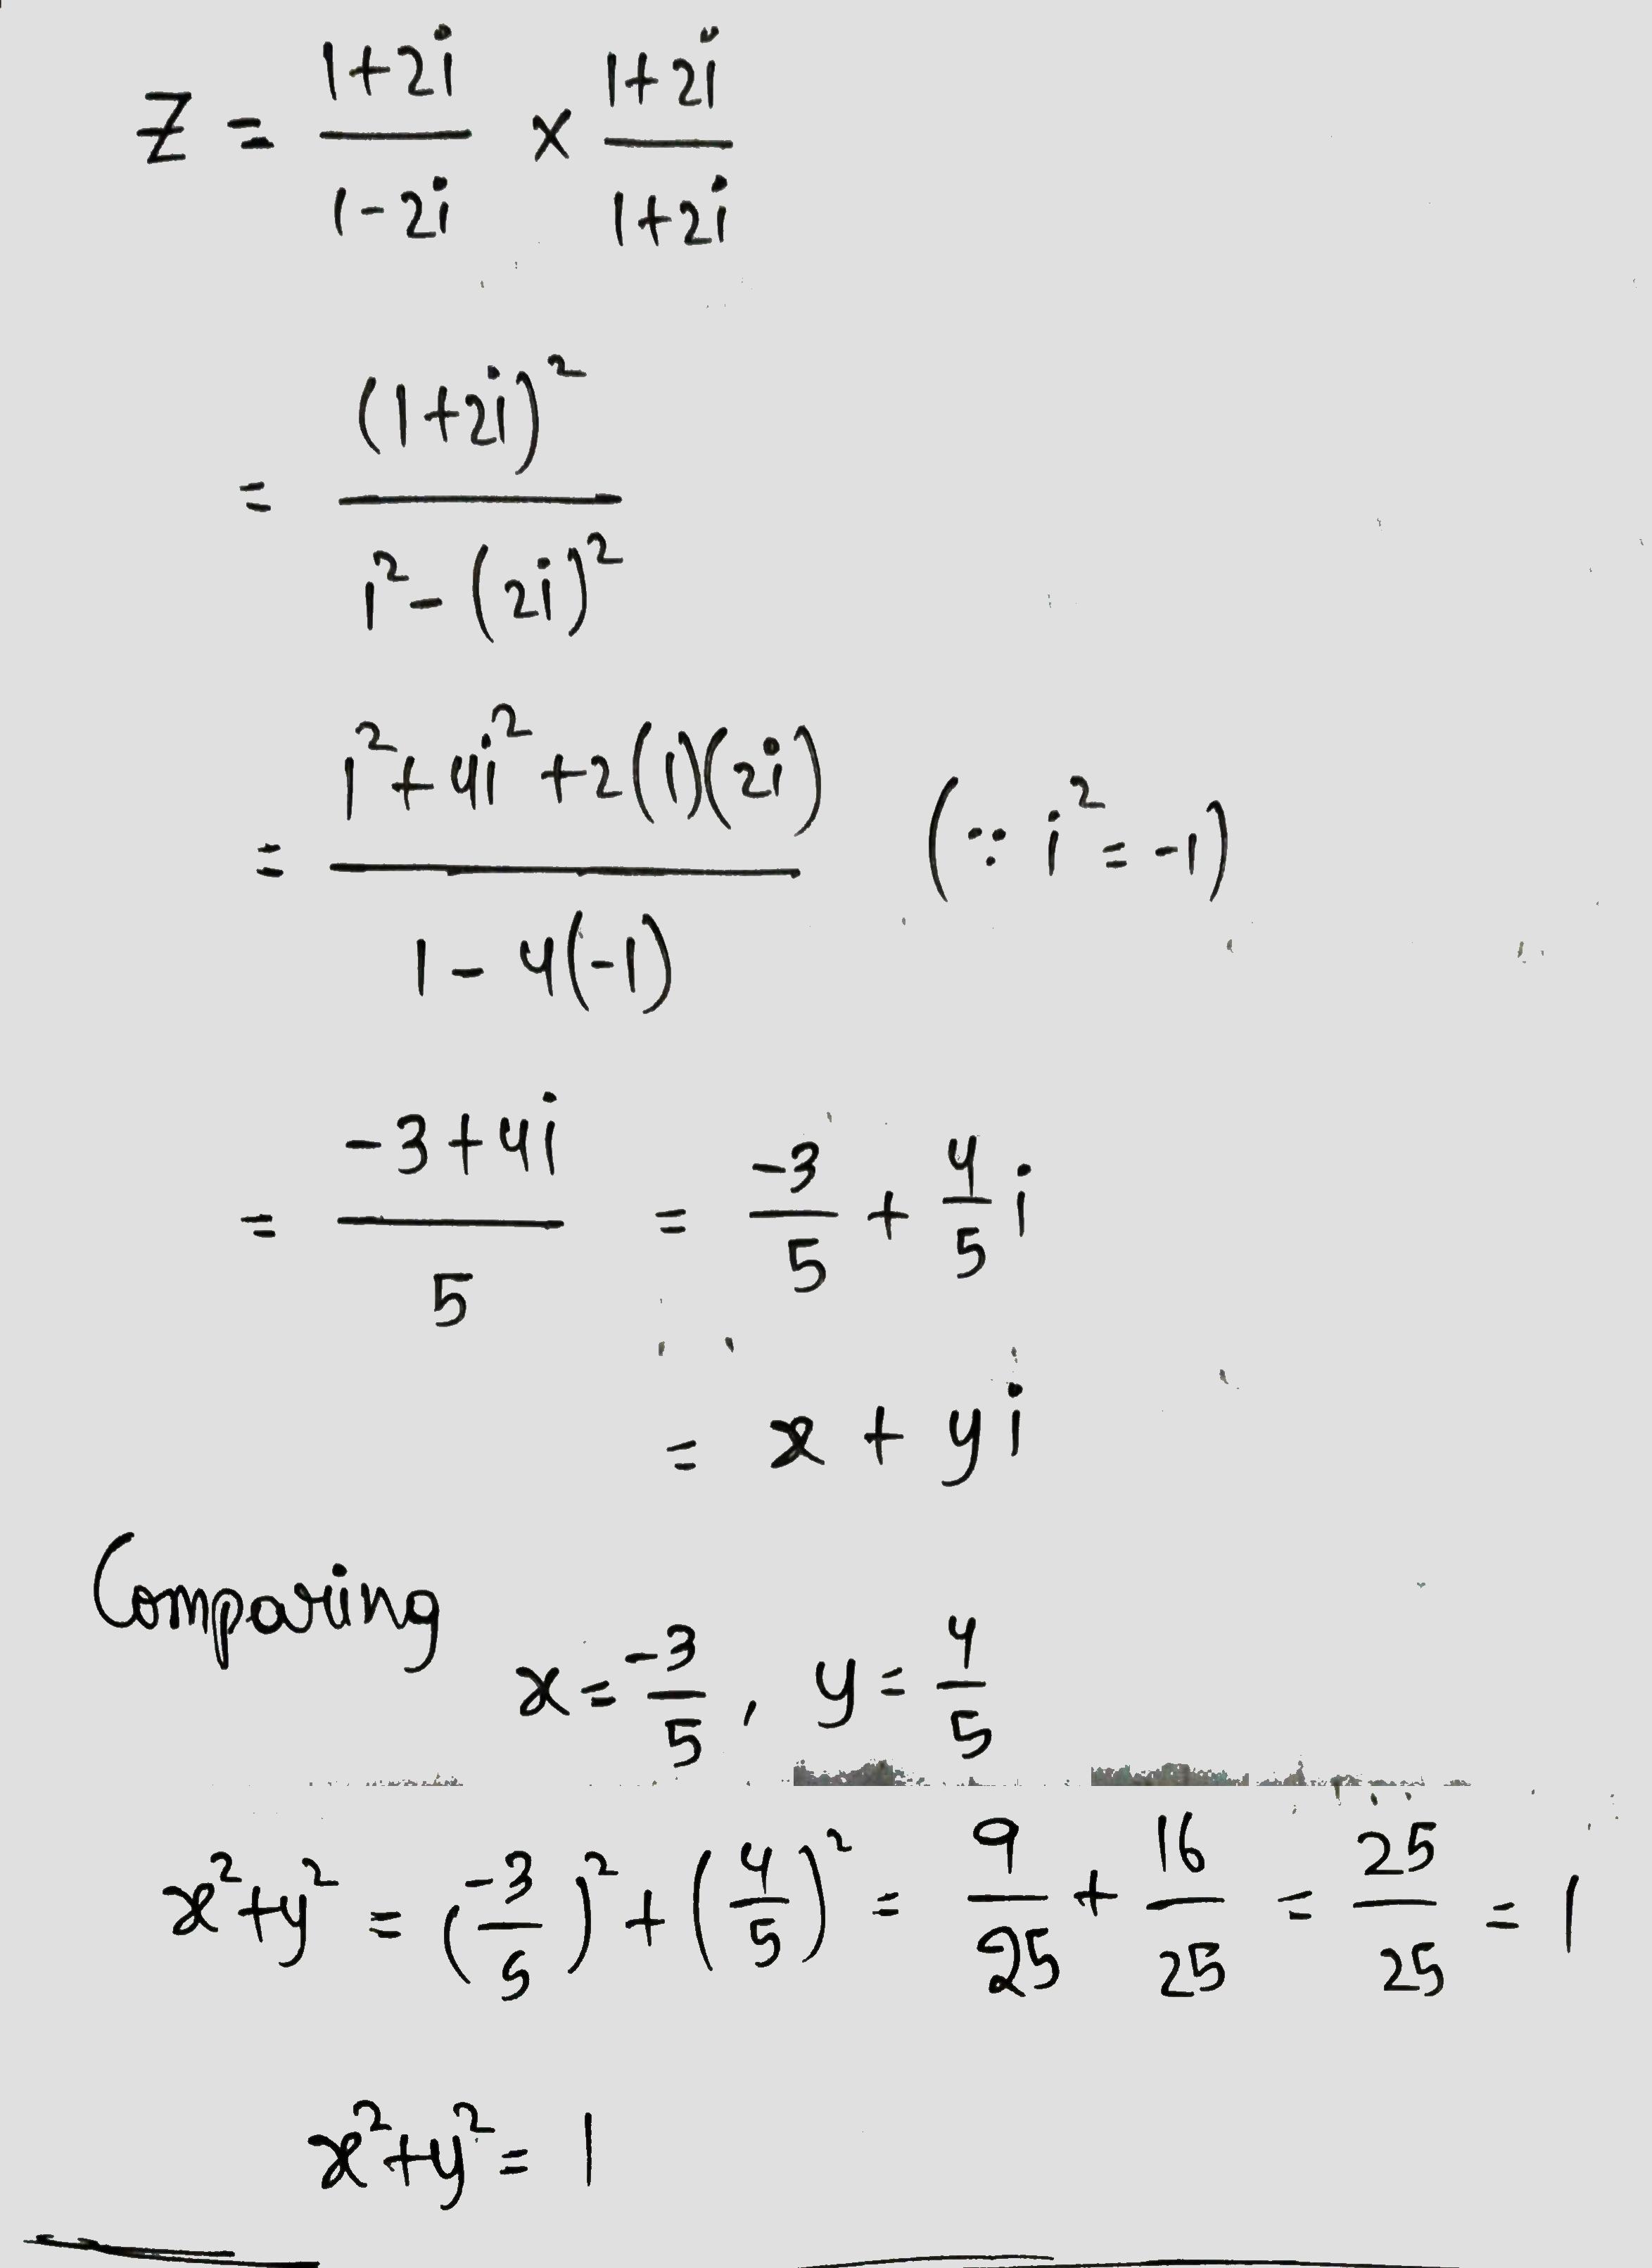 Z = (1+2i)/(1-2i) × (1+2i)/(1+2i)
= (1+2i)²/(1²-(2i)²)
= (1²+4i²+2(1)(2i))/(1-4(-1)) (∵ i²=-1)
= (-3+4i)/5 = -3/5 + 4/5 i
= x + yi
Comparing
x = -3/5, y = 4/5
x²+y² = (-3/5)² + (4/5)² = 9/25 + 16/25 = 25/25 = 1
x²+y² = 1